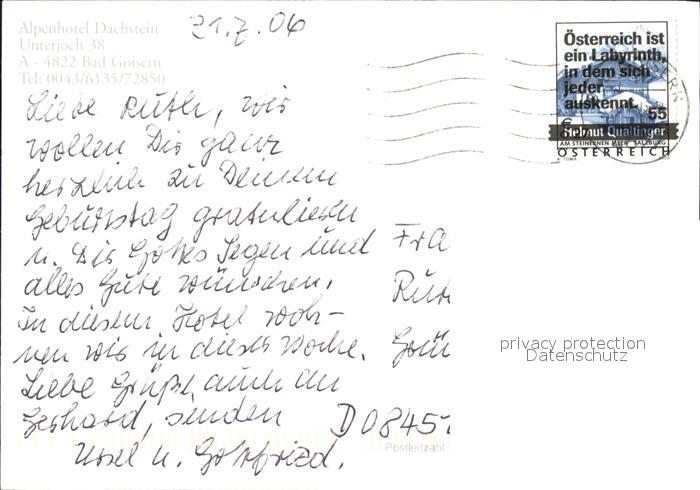 Alpenhotel Dachstein
Unterjoch 38
A - 4822 Bad Goisern
Tel: 0043/6135/72850
21.7.06
Liebe Ruth, wir
wollen Dir ganz
herzlich zu Deinem
Geburtstag gratulieren
u. Dir Gottes Segen und
alles Gute wünschen.
In diesem Hotel woh-
nen wir in dieser Woche.
Liebe Grüße, auch an
Gerhard, senden
Ursel u. Gottfried.
Österreich ist
ein Labyrinth,
in dem sich
jeder
auskennt.
55
€
Helmut Qualtinger
AM STEINERNEN MEER SALZBURG
ÖSTERREICH
A. TUMA
Fra
Ruth
Grün
D 0845
Postleitzahl
privacy protection
Datenschutz